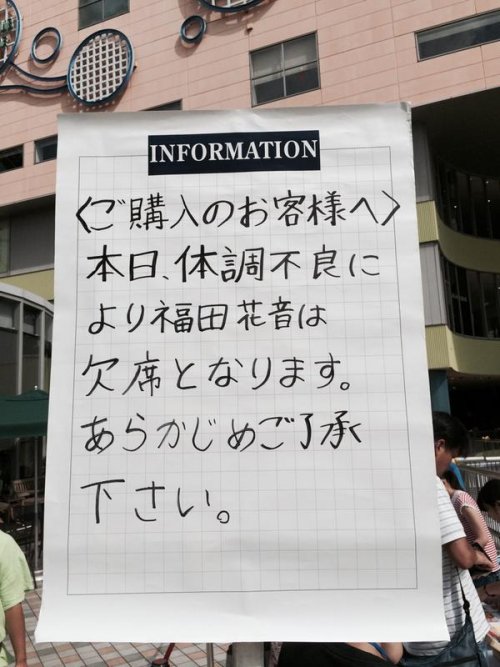 INFORMATION
〈ご購入のお客様へ〉
本日、体調不良に
より福田花音は
欠席となります。
あらかじめご了承
下さい。